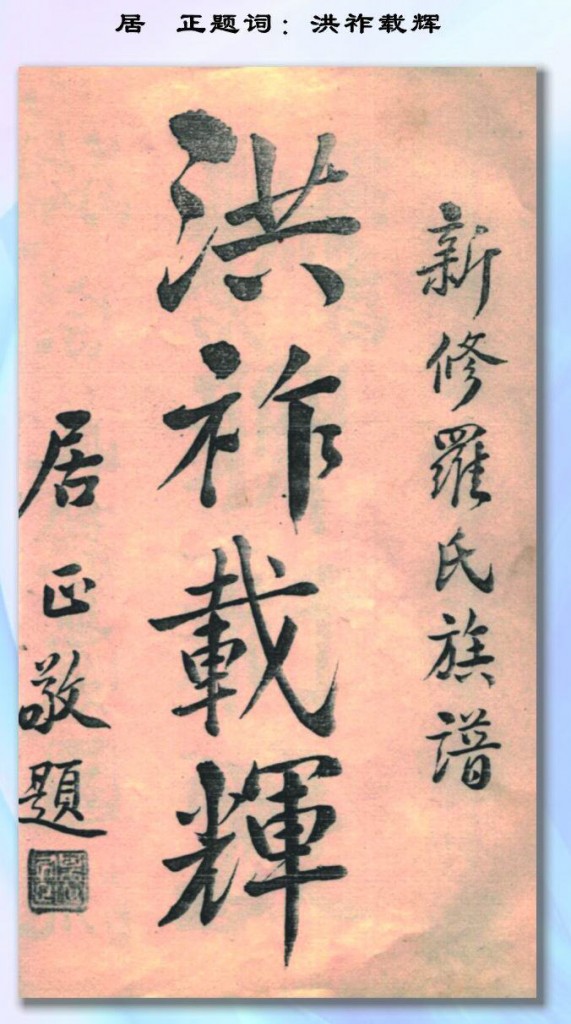 居　正题词：洪祚载辉
新修羅氏族譜
洪祚載輝
居正敬題